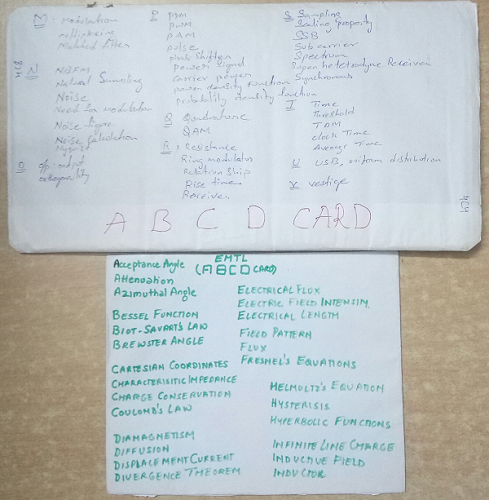 M: Modulation
multiplexing
Matched filter
N NBFM
Natural Sampling
Noise
Need for modulation
Noise figure
Noise Calculation
Nyquist
O op: output
orthogonality
P PDM
PWM
PAM
pulse
phase shifter
power signal
carrier power
power density function
Probability density function
Q Quadrature
QAM
R: Resistance
Ring modulator
Relation Ship
Rise time
Receiver
S Sampling
Scaling property
SSB
Sub carrier
Spectrum
Super heterodyne Receiver
Synchronous
T Time
Threshold
TDM
clock Time
Average Time
U USB, uniform distribution
V vestige
A B C D CARD
EMTL
(ABCD CARD)
Acceptance Angle
Attenuation
Azimuthal Angle
Bessel Function
Biot-Savart's Law
Brewster Angle
Cartesian Coordinates
Characterisitic Impedance
Charge Conservation
Coulomb's Law
Diamagnetism
Diffusion
Displacement Current
Divergence Theorem
Electrical Flux
Electric Field Intensity
Electrical Length
Field Pattern
Flux
Fresnel's Equations
Helmoltz's Equation
Hysterisis
Hyperbolic Functions
Infinite Line Charge
Inductive Field
Inductor